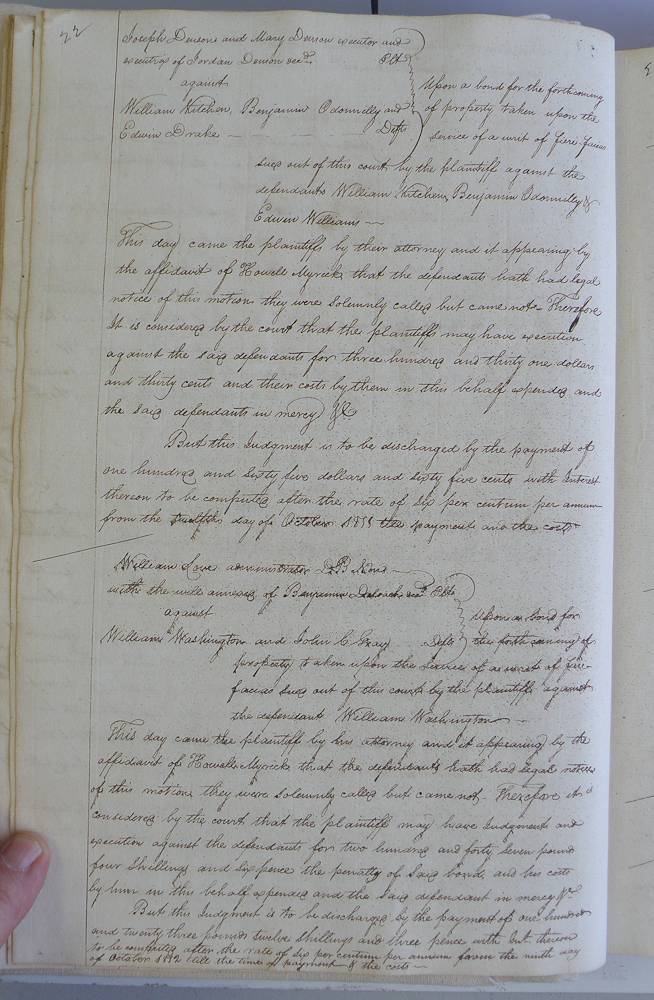 22
Joseph Denson and Mary Denson executor and
executrix of Jordan Denson decd. Plts
against
William Kitchen, Benjamin Odonnelly and
Edwin Drake Defts
Upon a bond for the forthcoming
of property taken upon the
service of a writ of fieri facias
sued out of this court by the plaintiff against the
defendants William Kitchen, Benjamin Odonnelly &
Edwin Williams
This day came the plaintiffs by their attorney and it appearing by
the affidavit of Howell Myrick that the defendants hath had legal
notice of this motion they were solemnly called but came not Therefore
It is considered by the court that the plaintiffs may have execution
against the said defendants for three hundred and thirty one dollars
and thirty cents and their costs by them in this behalf expended and
the said defendants in mercy &c
But this Judgment is to be discharged by the payment of
one hundred and sixty five dollars and sixty five cents with Interest
thereon to be computed after the rate of six per centum per annum
from the twelfth day of October 1811 the payment and the costs
William Love administrator D. B. Non
with the will annexed of Benjamin Deloach decd. Plts
against
William Washington and John C. Gray Defts
Upon a bond for
the forthcoming of
property taken upon the service of a writ of fieri
facias sued out of this court by the plaintiff against
the defendant William Washington
This day came the plaintiff by his attorney and it appearing by the
affidavit of Howell Myrick that the defendants hath had legal notice
of this motion they were solemnly called but came not. Therefore it is
considered by the court that the plaintiff may have Judgment and
execution against the defendants for two hundred and forty seven pounds
four Shillings and six pence the penalty of said bond and his costs
by him in this behalf expended and the said defendant in mercy &c
But this Judgment is to be discharged by the payment of one hundred
and twenty three pounds twelve shillings and three pence with Int. thereon
to be computed after the rate of six per centum per annum from the ninth day
of October 1812 till the time of payment & the costs